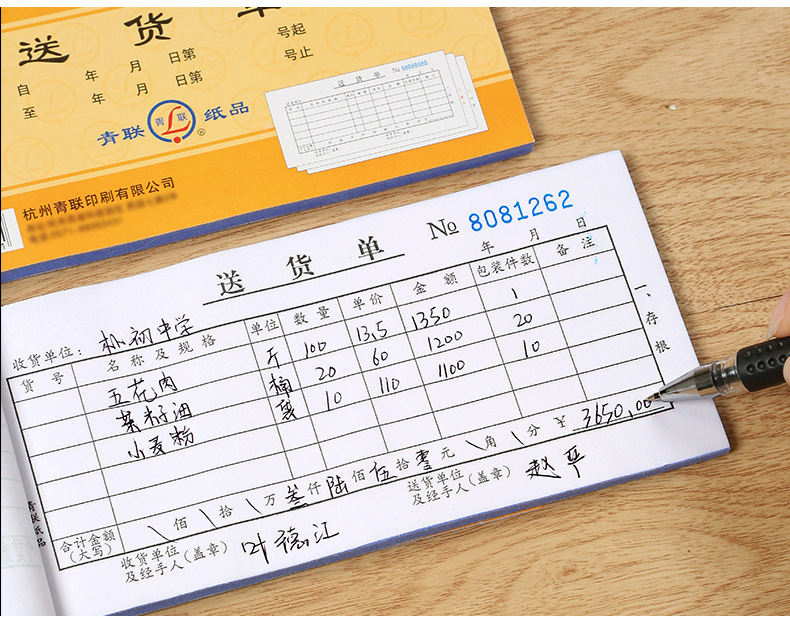 送货单
自 年 月 日第 号起
至 年 月 日第 号止
青联 青联 纸品 ®
杭州青联印刷有限公司
送货单 No 8081262
收货单位: 杺初中学 年 月 日
货号 名称及规格 单位 数量 单价 金额 包装件数 备注
五花肉 斤 100 13.5 1350 1
菜籽油 桶 20 60 1200 20
小麦粉 袋 10 110 1100 10
合计金额(大写) \ 佰 \ 拾 \ 万 叁 仟 陆 佰 伍 拾 零 元 \ 角 \ 分 ¥ 3650.00
收货单位及经手人(盖章) 叶德江 送货单位及经手人(盖章) 赵平
一、存根
青联纸品